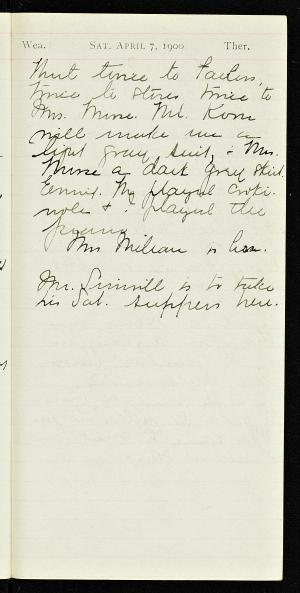 Wea. SAT. APRIL 7, 1900 Ther.
Went twice to Tailors,
twice to stores twice to
Mrs. Muse. Mr. Korn
will make me a
light gray suit, & Mrs.
Muse a dark gray skirt.
played Croki-
nole & played the
Mrs is here.
Mr. is to take
his Sat. suppers here.